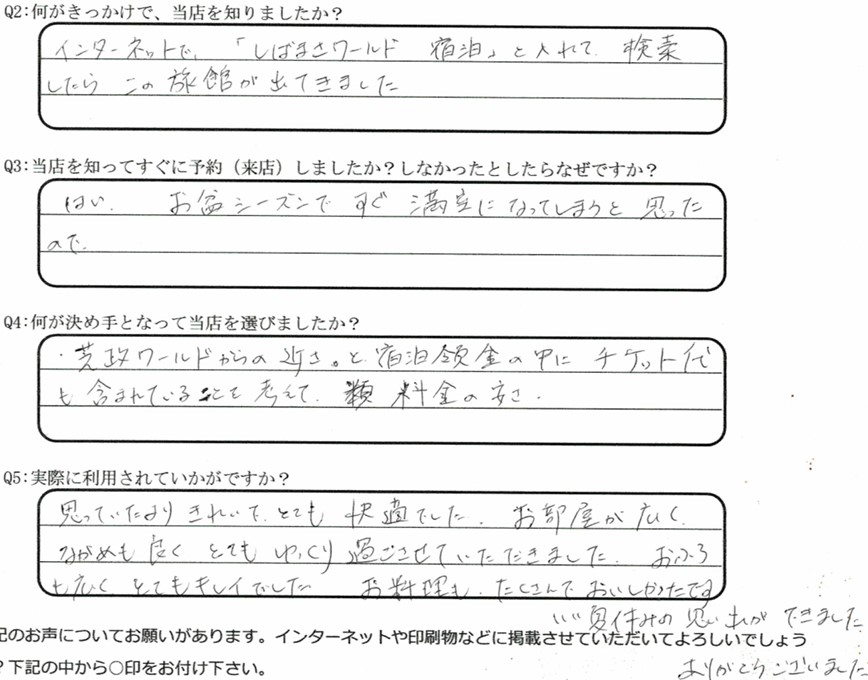 Q2:何がきっかけで、当店を知りましたか?
インターネットで、「しばまさワールド 宿泊」と入れて、検索
したら この旅館が出てきました
Q3:当店を知ってすぐに予約(来店)しましたか?しなかったとしたらなぜですか?
はい、 お盆シーズンで すぐ 満室になってしまうと 思った
ので、
Q4:何が決め手となって当店を選びましたか?
・芝政ワールドからの近さ。と宿泊領金の中に チケット代
も 含まれていることを 考えて、 料金の安さ.
Q5:実際に利用されていかがですか?
思っていたより きれいで、とても 快適でした。 お部屋が広く、
ながめも 良く とても ゆっくり 過ごさせていただきました。 おふろ
も広く とてもキレイでした お料理も、たくさんで おいしかったです
いい夏休みの思い出が できました
記のお声についてお願いがあります。インターネットや印刷物などに掲載させていただいてよろしいでしょう
?下記の中から○印をお付け下さい。
ありがとうございました